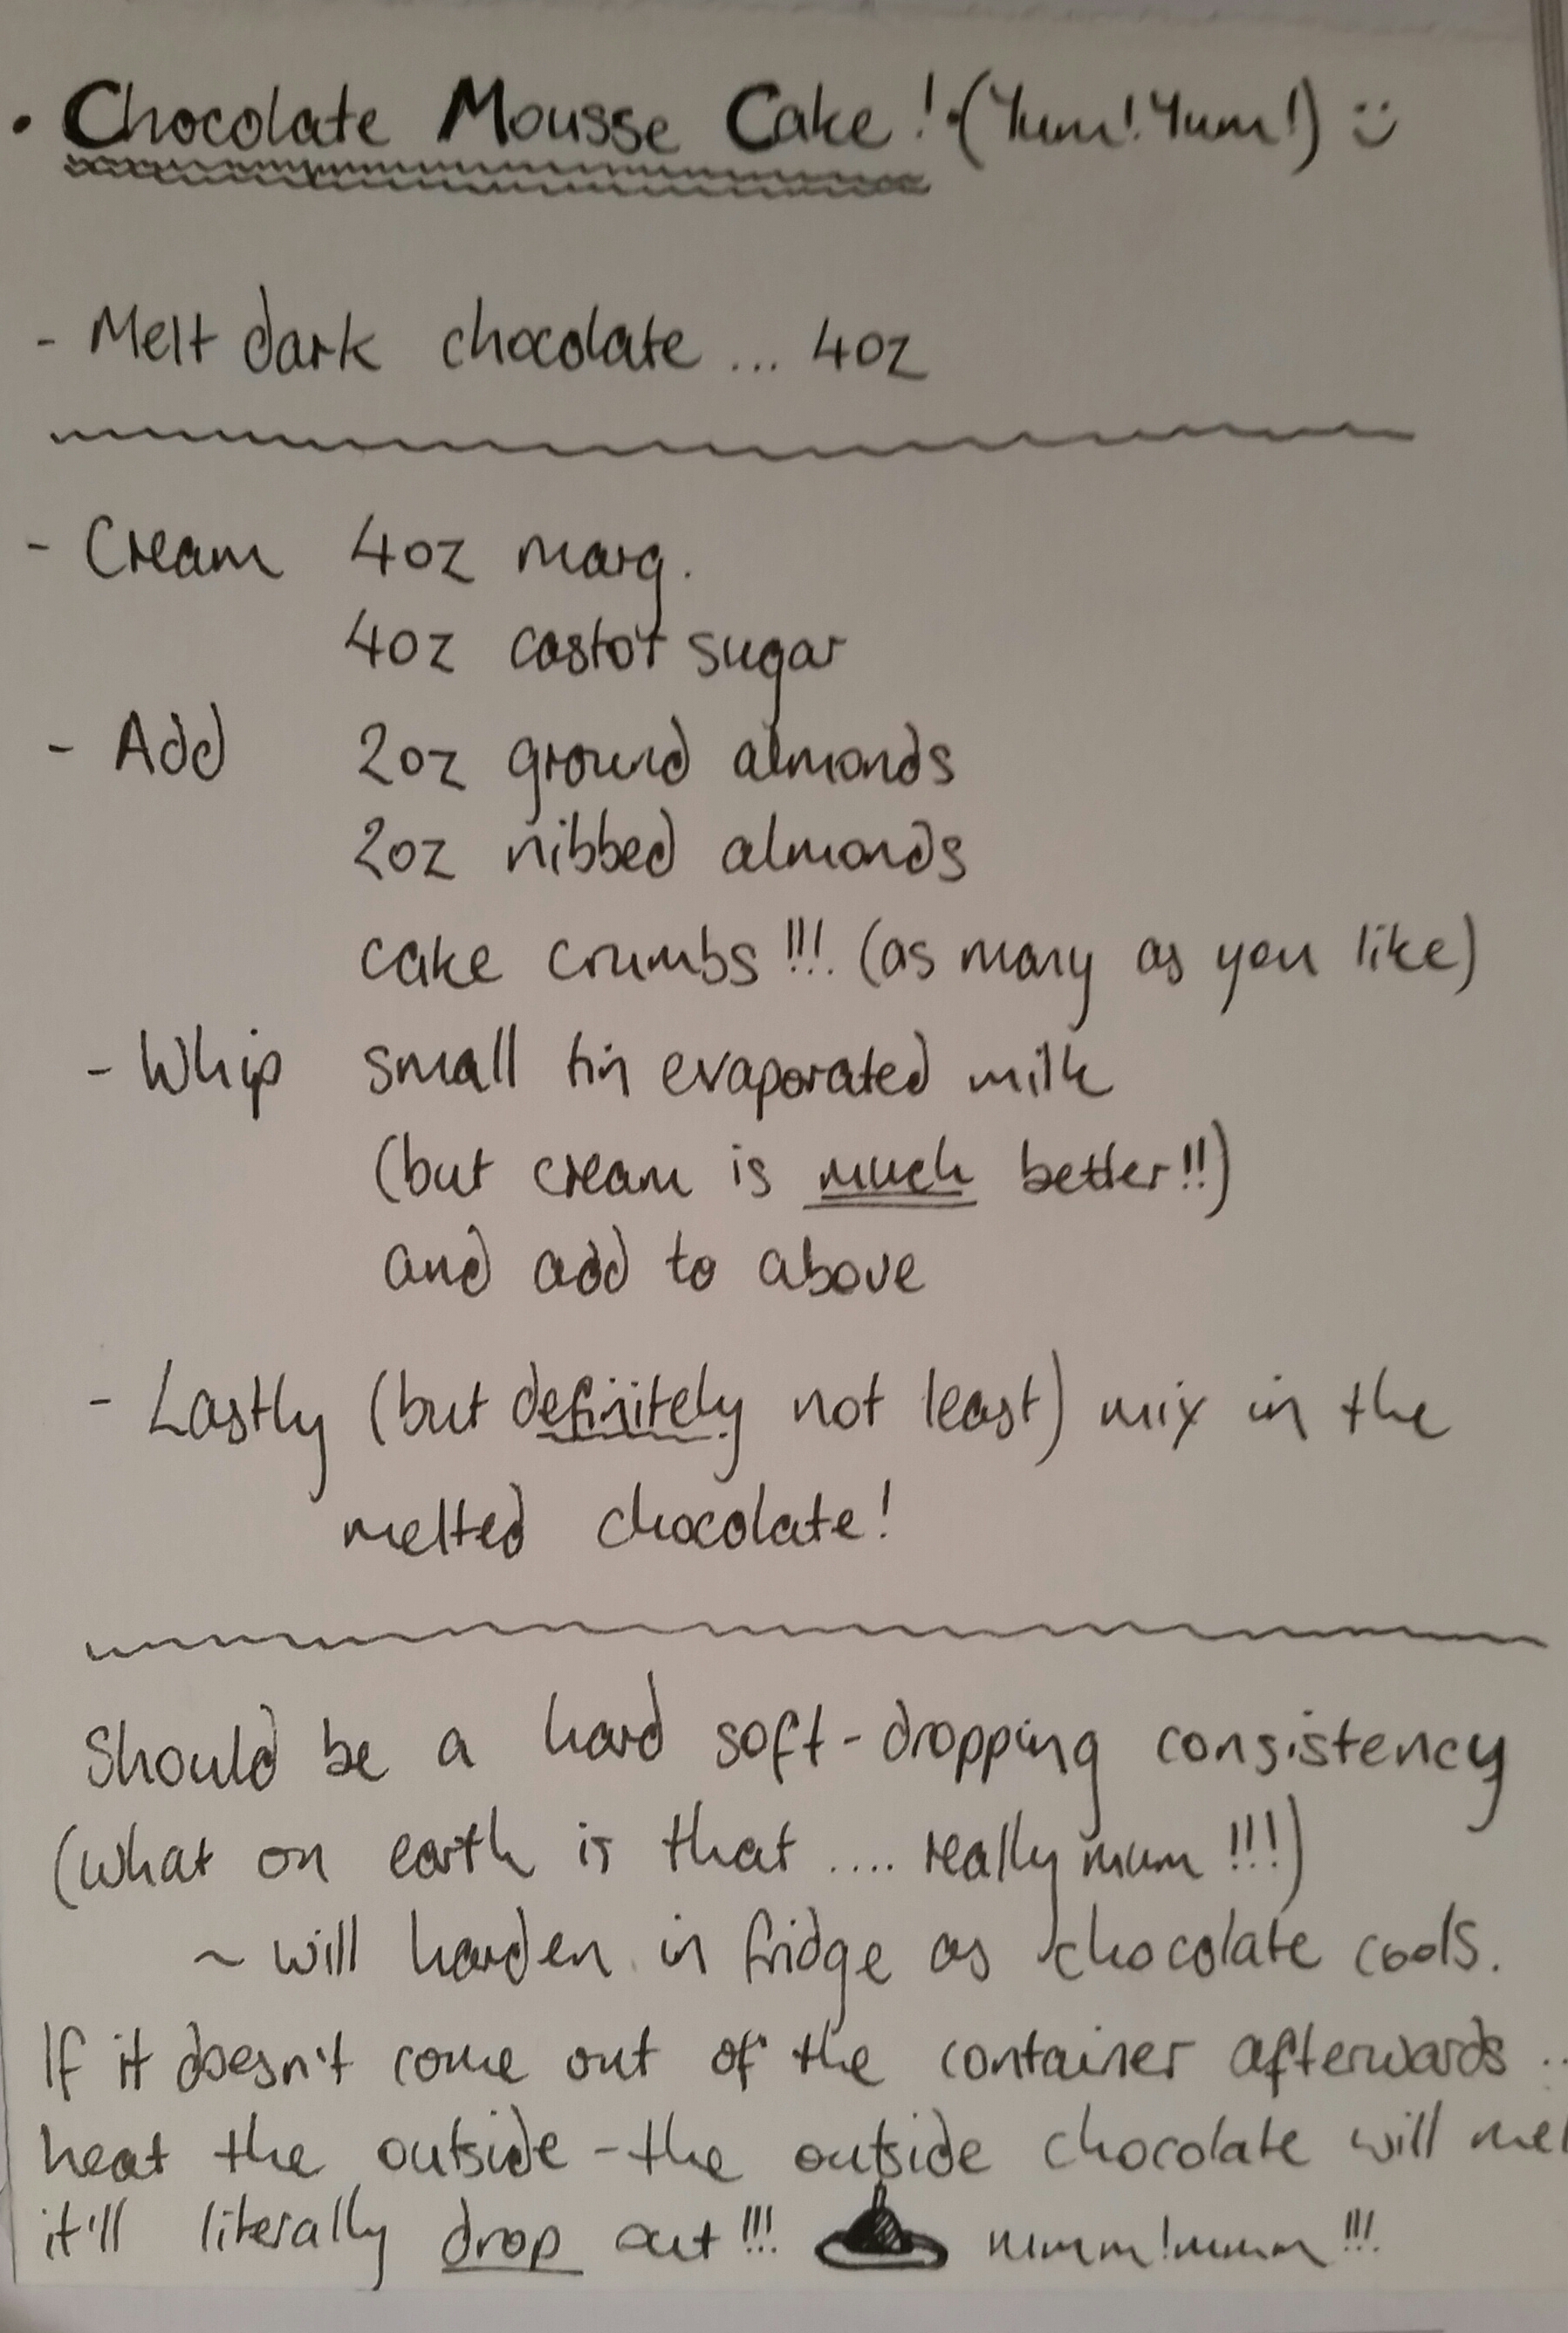 • Chocolate Mousse Cake! (Yum! Yum!) :)
- Melt dark chocolate ... 4oz
- Cream 4oz marg.
4oz castor sugar
- Add 2oz ground almonds
2oz nibbed almonds
cake crumbs!!! (as many as you like)
- Whip small tin evaporated milk
(but cream is much better!!)
and add to above
- Lastly (but definitely not least) mix in the
melted chocolate!
Should be a hard soft-dropping consistency
(what on earth is that .... really mum!!!)
~ will harden in fridge as chocolate cools.
If it doesn't come out of the container afterwards ..
heat the outside - the outside chocolate will mel
it'll literally drop out!!! mmmm!mmmm!!!